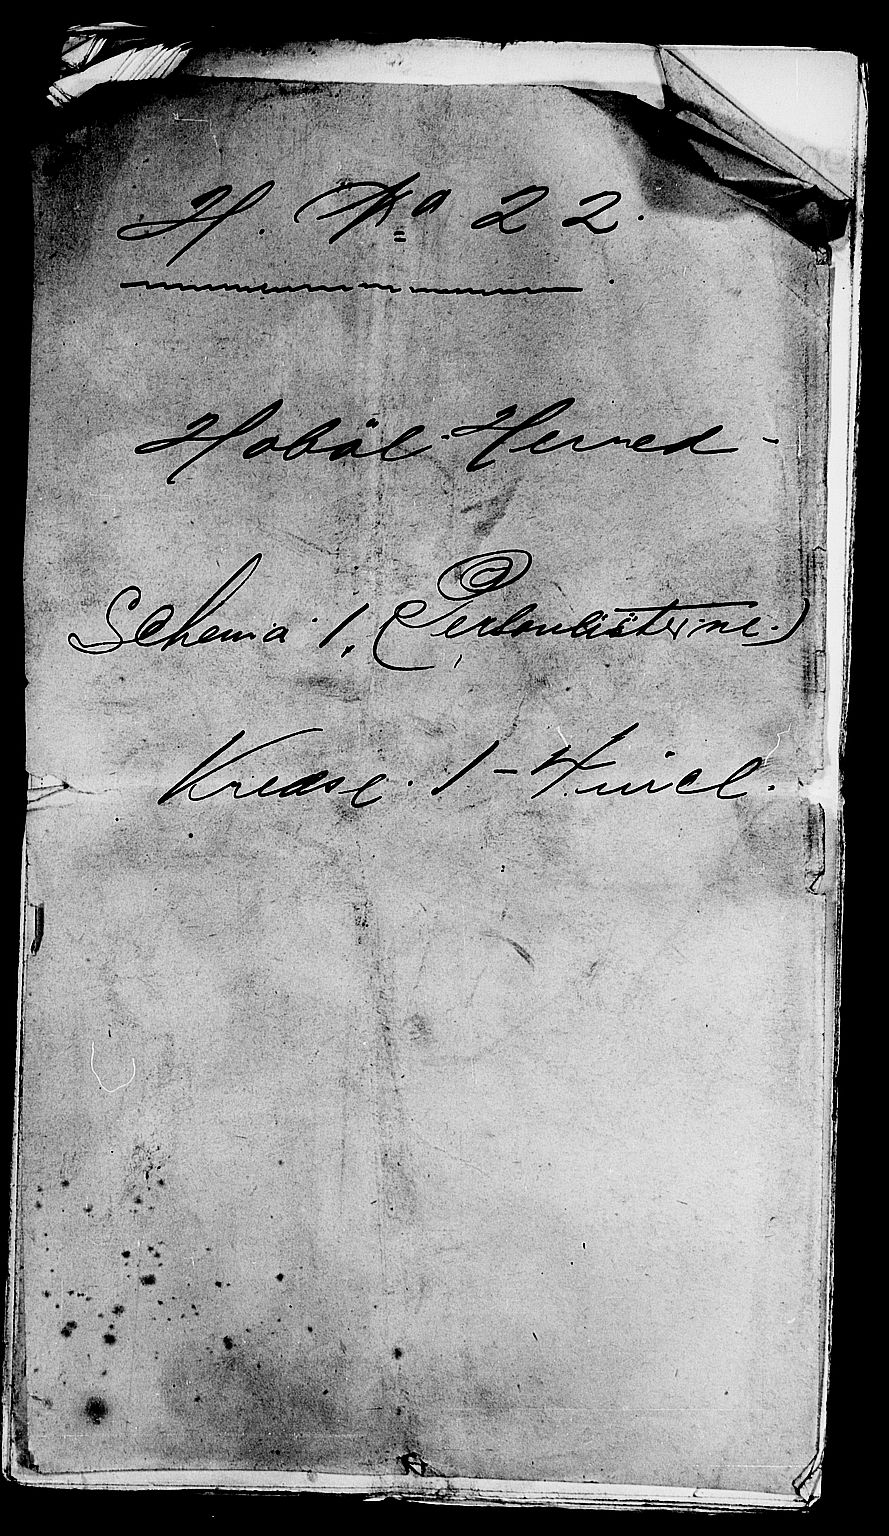 H. No 22.
Hobøl Herred -
Schema 1. (Personlisterne.)
Kredse. 1 -